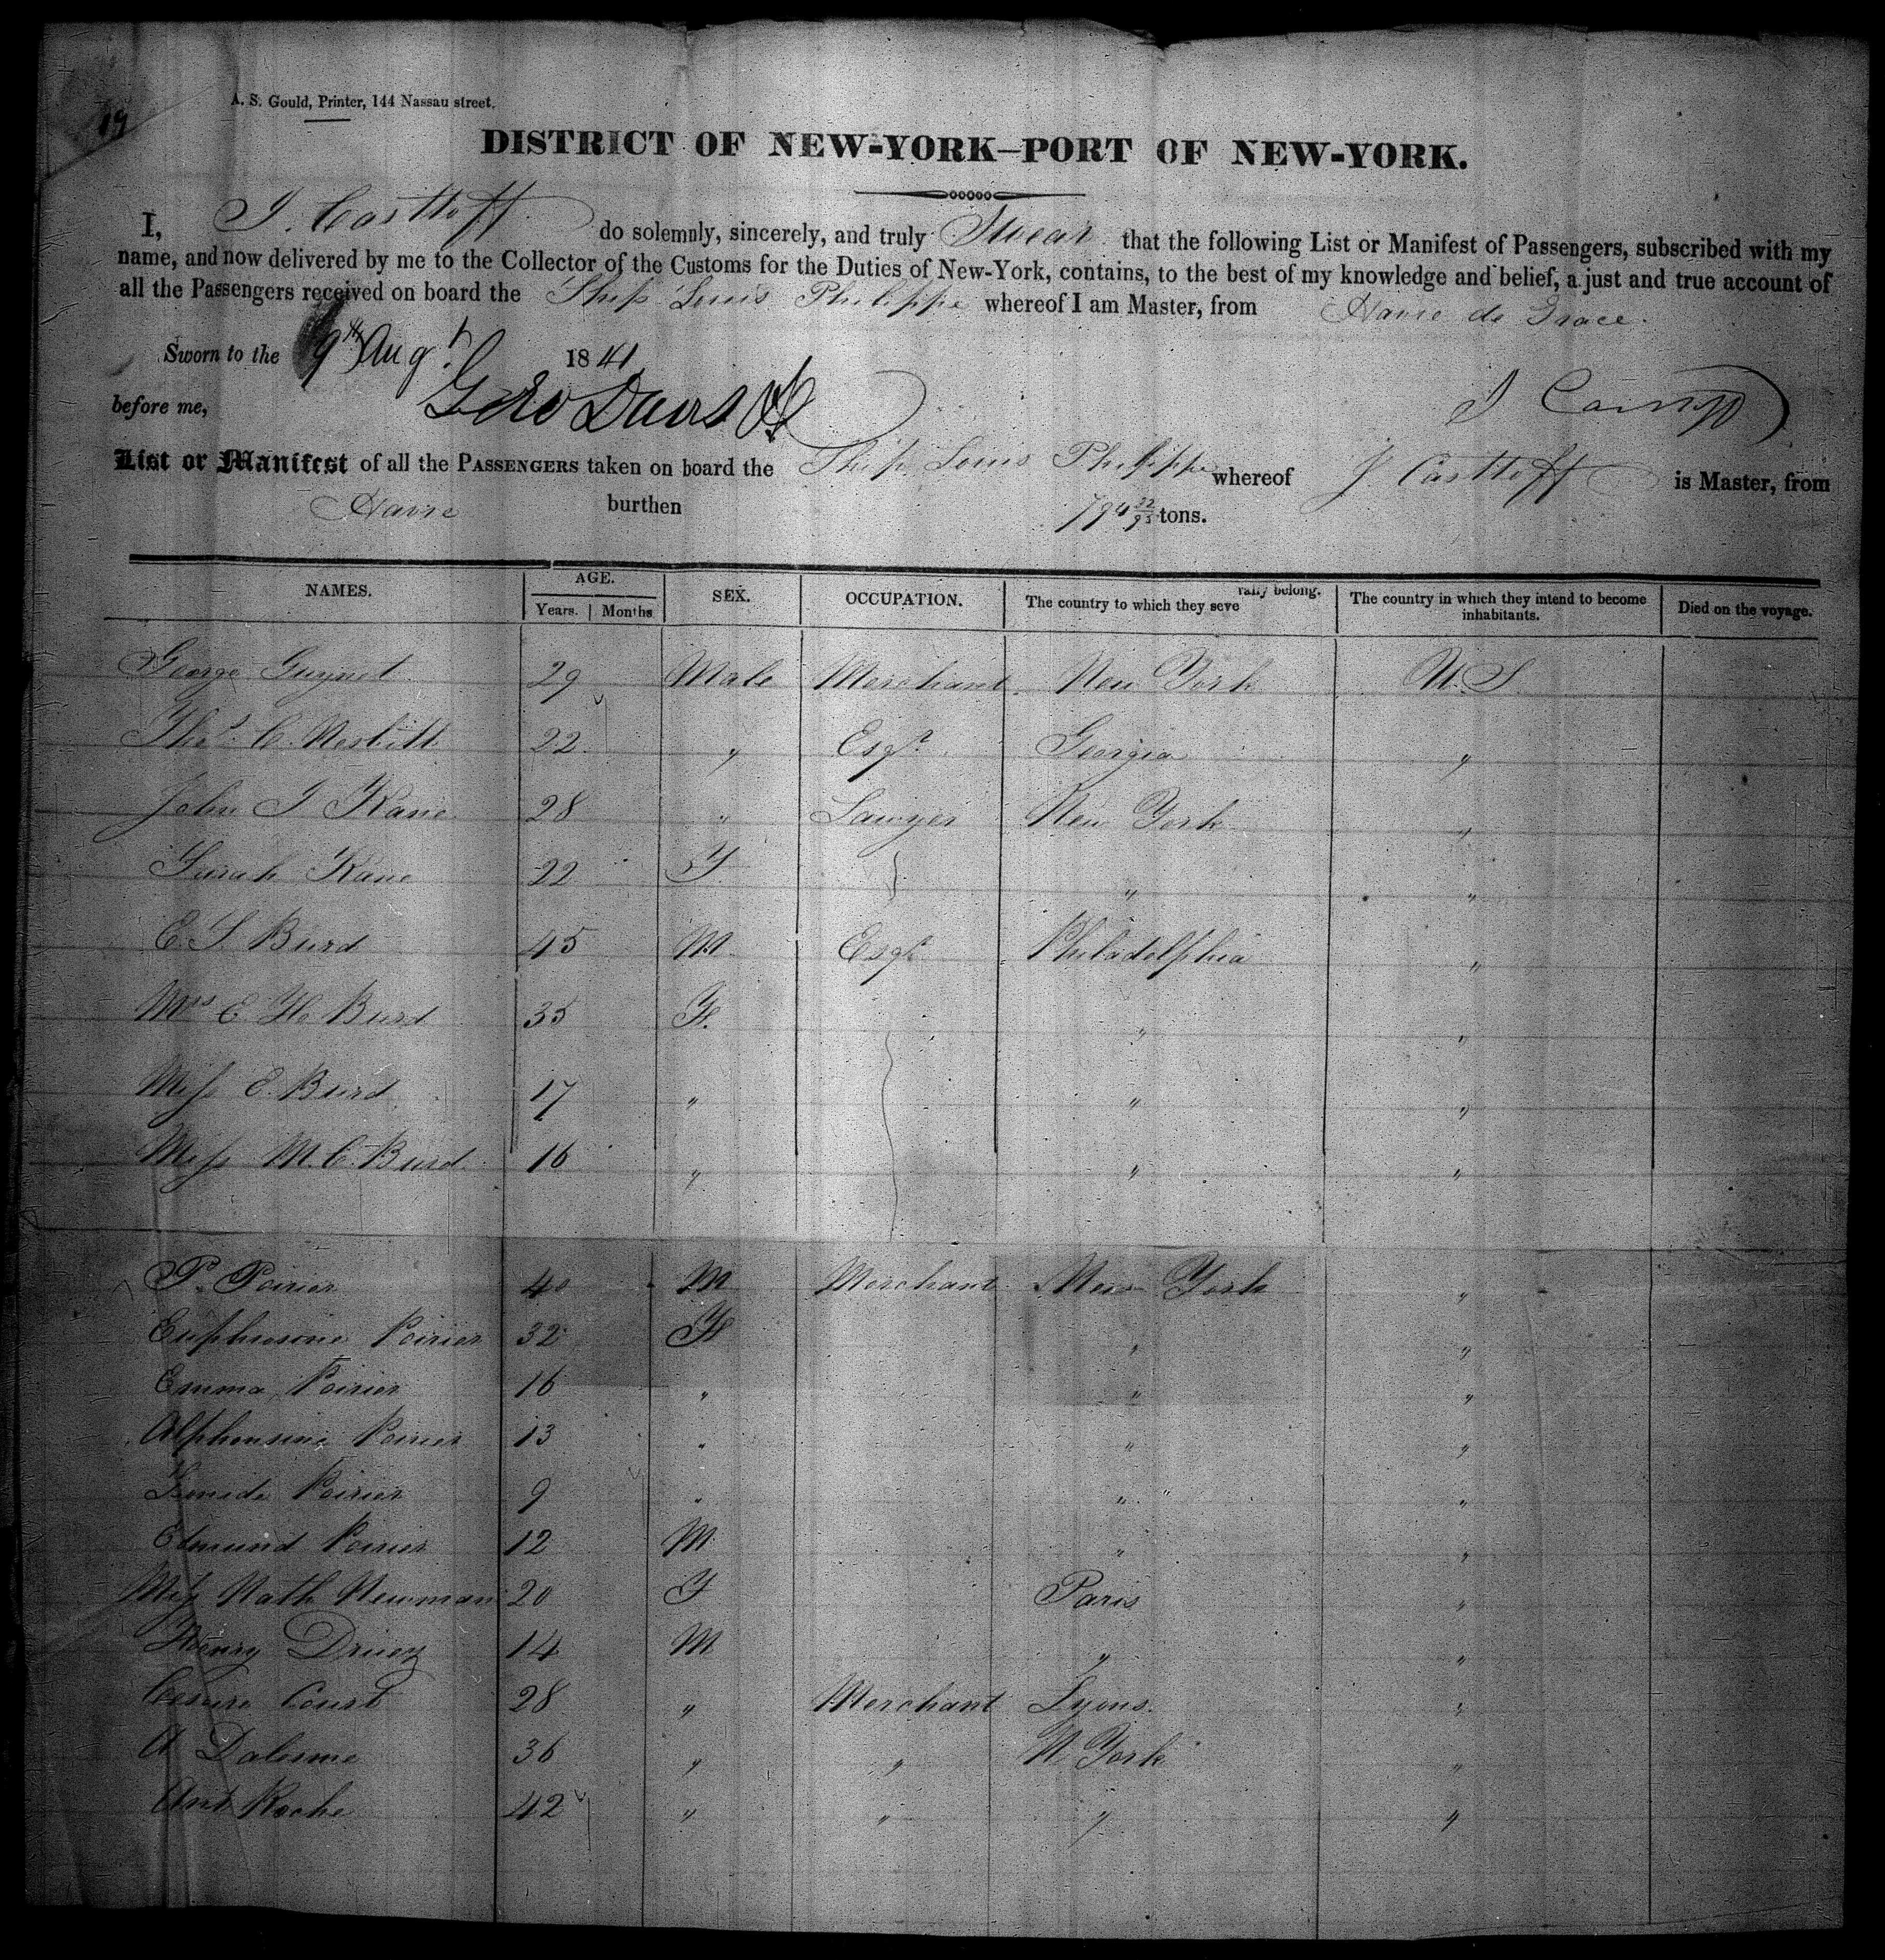 19
A. S. Gould, Printer, 144 Nassau street.
DISTRICT OF NEW-YORK—PORT OF NEW-YORK.
I, J. Casttoff do solemnly, sincerely, and truly Swear that the following List or Manifest of Passengers, subscribed with my
name, and now delivered by me to the Collector of the Customs for the Duties of New-York, contains, to the best of my knowledge and belief, a just and true account of
all the Passengers received on board the Ship Louis Philippe whereof I am Master, from Havre de Grace.
Sworn to the 9th Augt. 1841
before me, Geo Davis J
List or Manifest of all the PASSENGERS taken on board the Ship Louis Philippe whereof J Casttoff is Master, from
Havre burthen 794 22/95 tons.
NAMES. AGE. SEX. OCCUPATION. The country to which they severally belong. The country in which they intend to become inhabitants. Died on the voyage.
Years. Months
George 29 Male Merchant New York U. S.
Thos. C. Nesbitt 22 " Esqr. Georgia "
John I Kane 28 " Lawyer New York "
Sarah Kane 22 F " "
E. S. Burd 45 M Esqr Philadelphia "
Mrs E Ho Burd 35 F. " "
Miss E. Burd 17 " " "
Miss M. C. Burd 16 " " "
P. Poirier 40 M Merchant New York "
Euphrosine Poirier 32 F " "
Emma Poirier 16 " " "
Alphonsine Poirier 13 " " "
Poirier 9 " " "
Edmund Poirier 12 M " "
Miss Nath Newman 20 F Paris "
Henry 14 M " "
Court 28 " Merchant Lyons. "
A 36 " " N York "
Ant Roche 42 " " " "